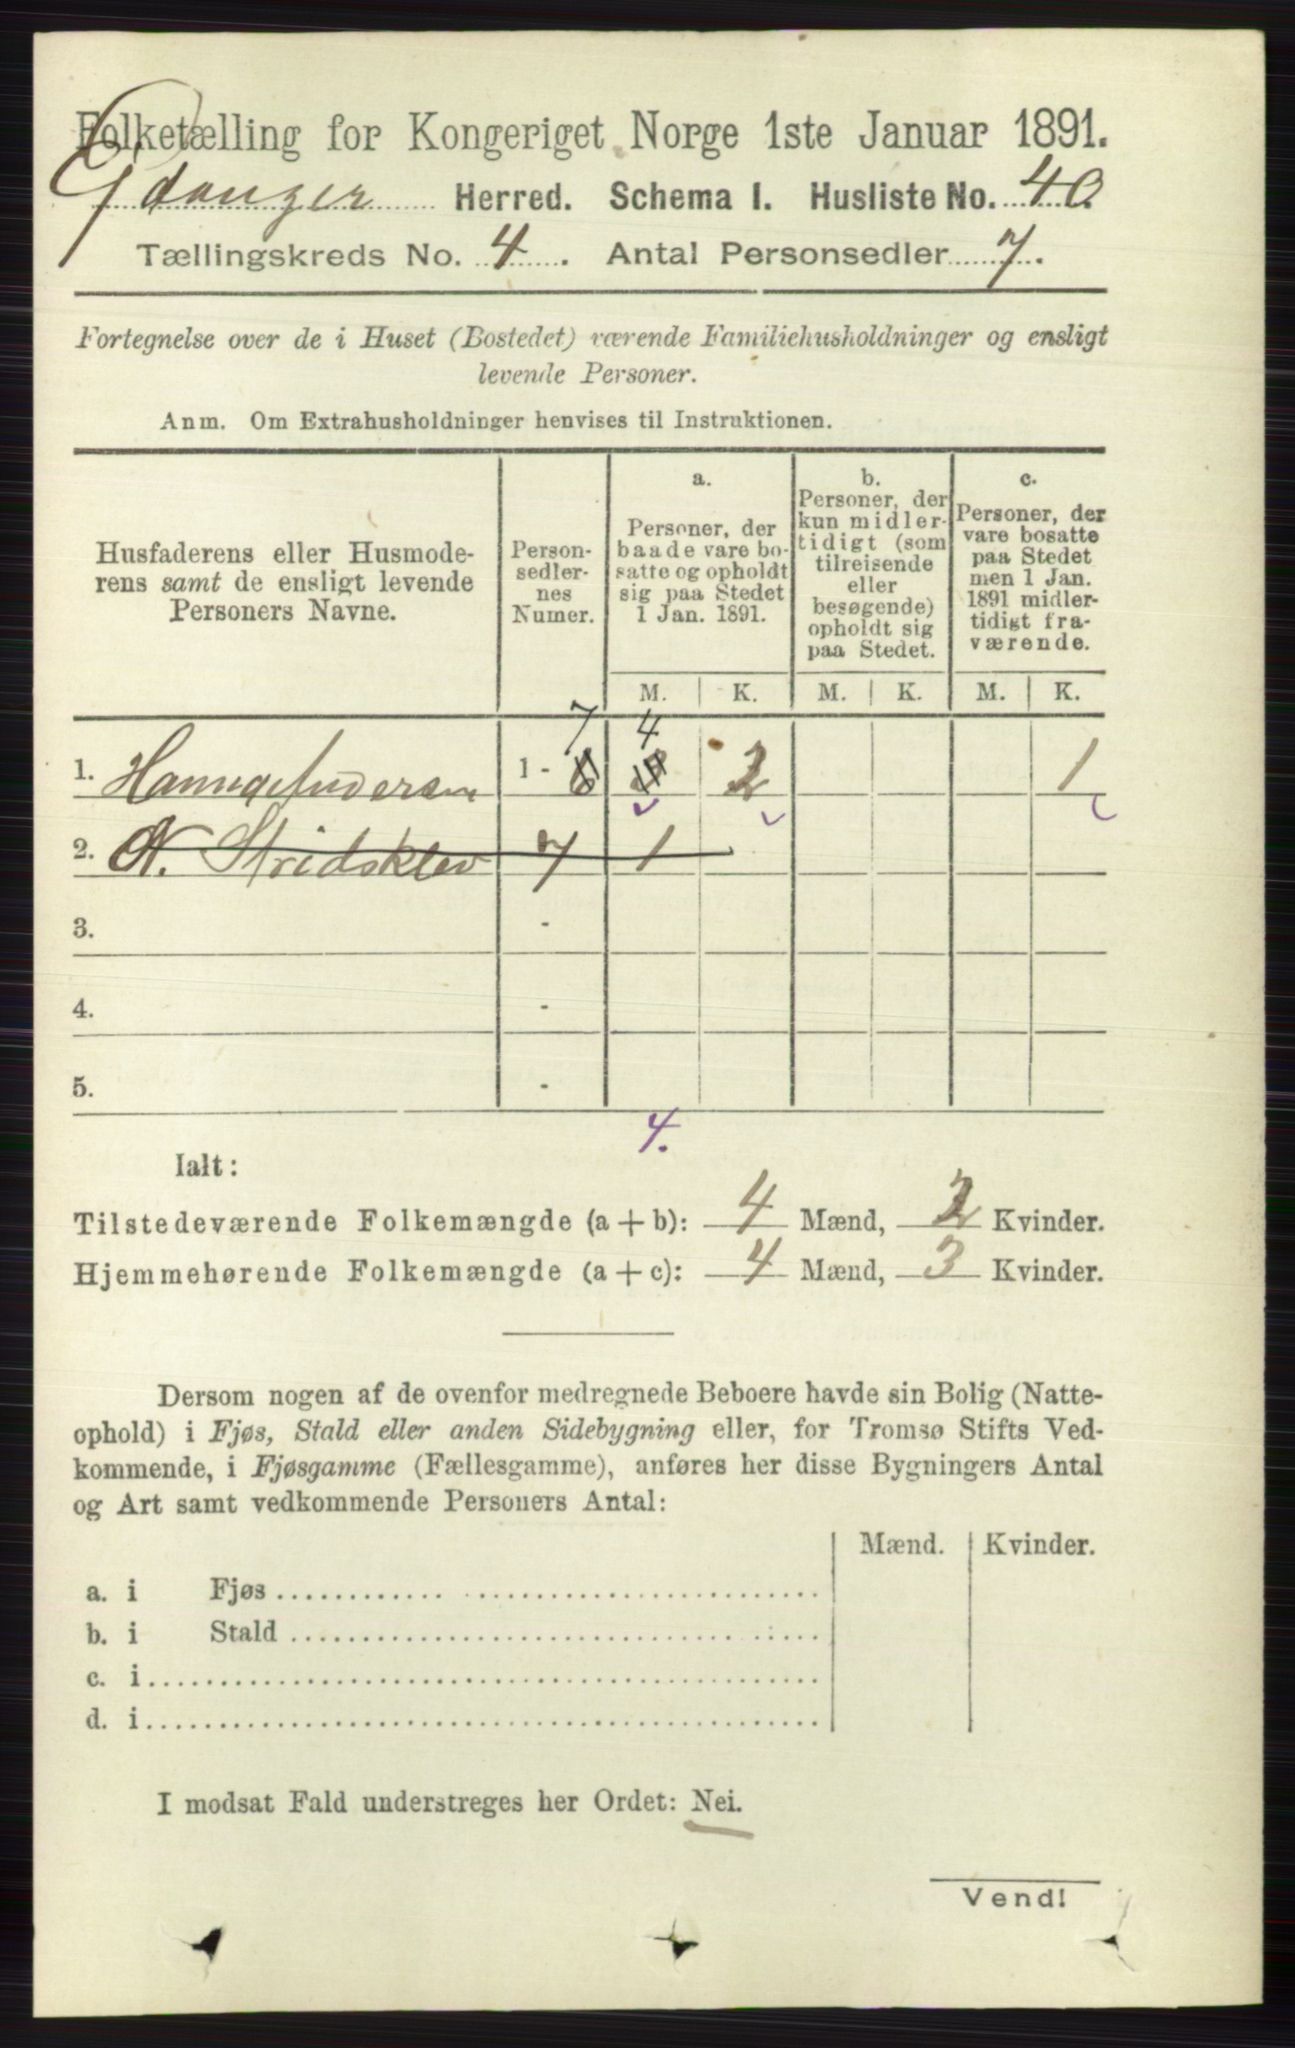 Folketælling for Kongeriget Norge 1ste Januar 1891.
Eidanger Herred. Schema I. Husliste No. 40
Tællingskreds No. 4. Antal Personsedler 7.
Fortegnelse over de i Huset (Bostedet) værende Familiehusholdninger og ensligt
levende Personer.
Anm. Om Extrahusholdninger henvises til Instruktionen.
Husfaderens eller Husmode-
rens samt de ensligt levende
Personers Navne.
Person-
sedler-
nes
Numer.
a.
Personer, der
baade vare bo-
satte og opholdt
sig paa Stedet
1 Jan. 1891.
b.
Personer, der
kun midler-
tidigt (som
tilreisende
eller
besøgende)
opholdt sig
paa Stedet.
c.
Personer, der
vare bosatte
paa Stedet
men 1 Jan.
1891 midler-
tidigt fra-
værende.
M. K. M. K. M. K.
7 4
1. Andersen 1 - 6 2 1
2. N. Stridsklev 7 1
3. -
4. -
5. -
4.
Ialt:
Tilstedeværende Folkemængde (a + b): 4 Mænd, 2 Kvinder.
Hjemmehørende Folkemængde (a + c): 4 Mænd, 3 Kvinder.
Dersom nogen af de ovenfor medregnede Beboere havde sin Bolig (Natte-
ophold) i Fjøs, Stald eller anden Sidebygning eller, for Tromsø Stifts Ved-
kommende, i Fjøsgamme (Fællesgamme), anføres her disse Bygningers Antal
og Art samt vedkommende Personers Antal:
Mænd. Kvinder.
a. i Fjøs
b. i Stald
c. i
d. i
I modsat Fald understreges her Ordet: Nei.
Vend!